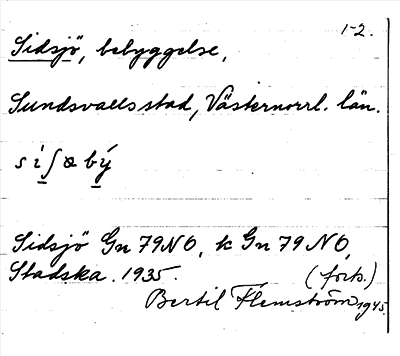 1-2.
Sidsjö, bebyggelse,
Sundsvalls stad, Västernorrl. län.
Sidsjö Gn 79 NO, k Gn 79 NO,
Stadska. 1935. (forts.)
Bertil Flemström 1945.